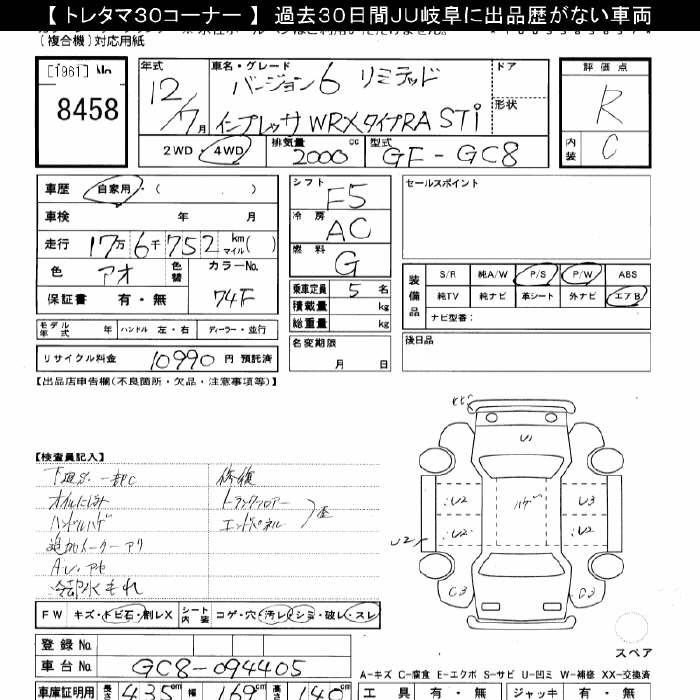 【 トレタマ30コーナー 】 過去30日間JU岐阜に出品歴がない車両
(複合機)対応用紙
[1961] No
8458
年式
12/7月
車名・グレード
バージョン6 リミテッド
インプレッサ WRXタイプRA STi
ドア
形状
評価点
R
内装
C
2WD・4WD
排気量
2000 cc
型式
GF-GC8
車歴
自家用・( )
車検 年 月
走行 17万6千752 km マイル( )
色 アオ 色替
カラーNo.
74F
保証書 有・無
シフト F5
冷房 AC
燃料 G
乗車定員 5 名
積載量 kg
総重量 kg
セールスポイント
装備品
S/R 純A/W P/S P/W ABS
純TV 純ナビ 革シート 外ナビ エアB
ナビ型番:
モデル年式 年 ハンドル 左・右 ディーラー・並行
名変期限
月 日
後日品
リサイクル料金 10990 円 預託済
【出品店申告欄(不良箇所・欠品・注意事項等)】
【検査員記入】
オイルにじみ
ハンドルハゲ
追加メーター アリ
冷却水もれ
修復
トランクフロアー
エンドパネル
歪
U1
U2
U2
ハゲ
U3
U2
U2
C3
D3
スペア
FW キズ・トビ石・割レX シート内装 コゲ・穴・汚レ・シミ・破レ・スレ
登録No.
車台No. GC8-094405
A-キズ C-腐食 E-エクボ S-サビ U-凹ミ W-補修 XX-交換済
車庫証明用 長さ 435 cm 幅 169 cm 高さ 140 cm
工具 有・無 ジャッキ 有・無